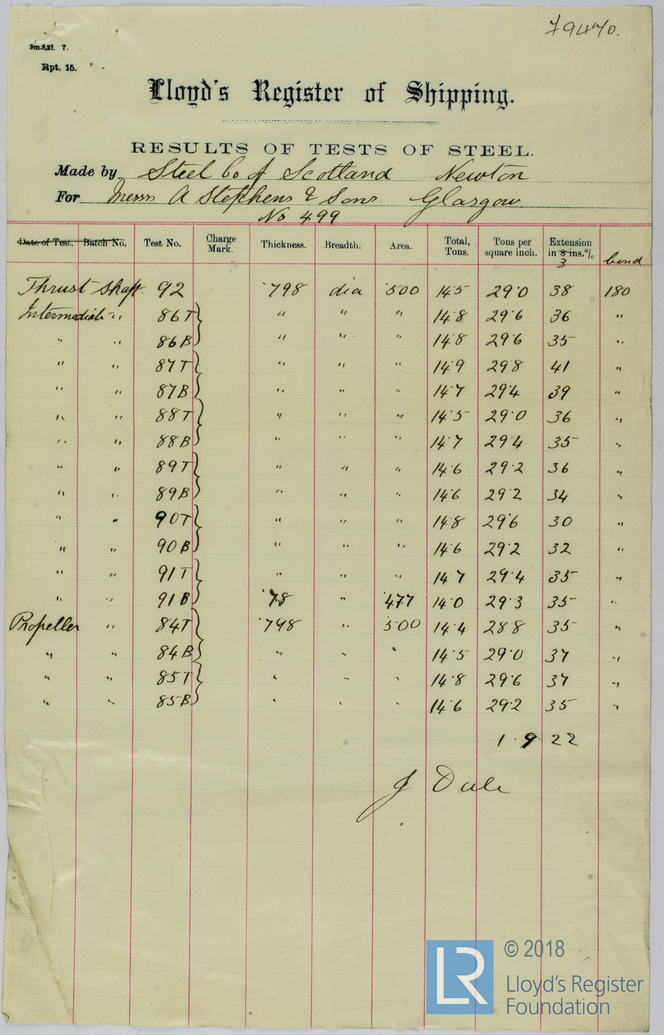 79470.
3m.8,21. 7.
Rpt. 15.
Lloyd's Register of Shipping.
RESULTS OF TESTS OF STEEL.
Made by Steel Co of Scotland Newton
For Messrs A Stephens & Sons. Glasgow
No 499
Date of Test. Batch No. Test No. Charge Mark. Thickness. Breadth. Area. Total, Tons. Tons per square inch. Extension in 8 ins. % 3 bend
Thrust Shaft 92 .798 dia .500 14.5 29.0 38 180
Intermediate " 86T " " " 14.8 29.6 36 "
" " 86B " " " 14.8 29.6 35 "
" " 87T " " " 14.9 29.8 41 "
" " 87B " " " 14.7 29.4 39 "
" " 88T " " " 14.5 29.0 36 "
" " 88B " " " 14.7 29.4 35 "
" " 89T " " " 14.6 29.2 36 "
" " 89B " " " 14.6 29.2 34 "
" " 90T " " " 14.8 29.6 30 "
" " 90B " " " 14.6 29.2 32 "
" " 91T " " " 14.7 29.4 35 "
" " 91B .78 " .477 14.0 29.3 35 "
Propeller " 84T .798 " .500 14.4 28.8 35 "
" " 84B " " " 14.5 29.0 37 "
" " 85T " " " 14.8 29.6 37 "
" " 85B " " " 14.6 29.2 35 "
1.9.22
J Dale
LR
© 2018
Lloyd's Register
Foundation